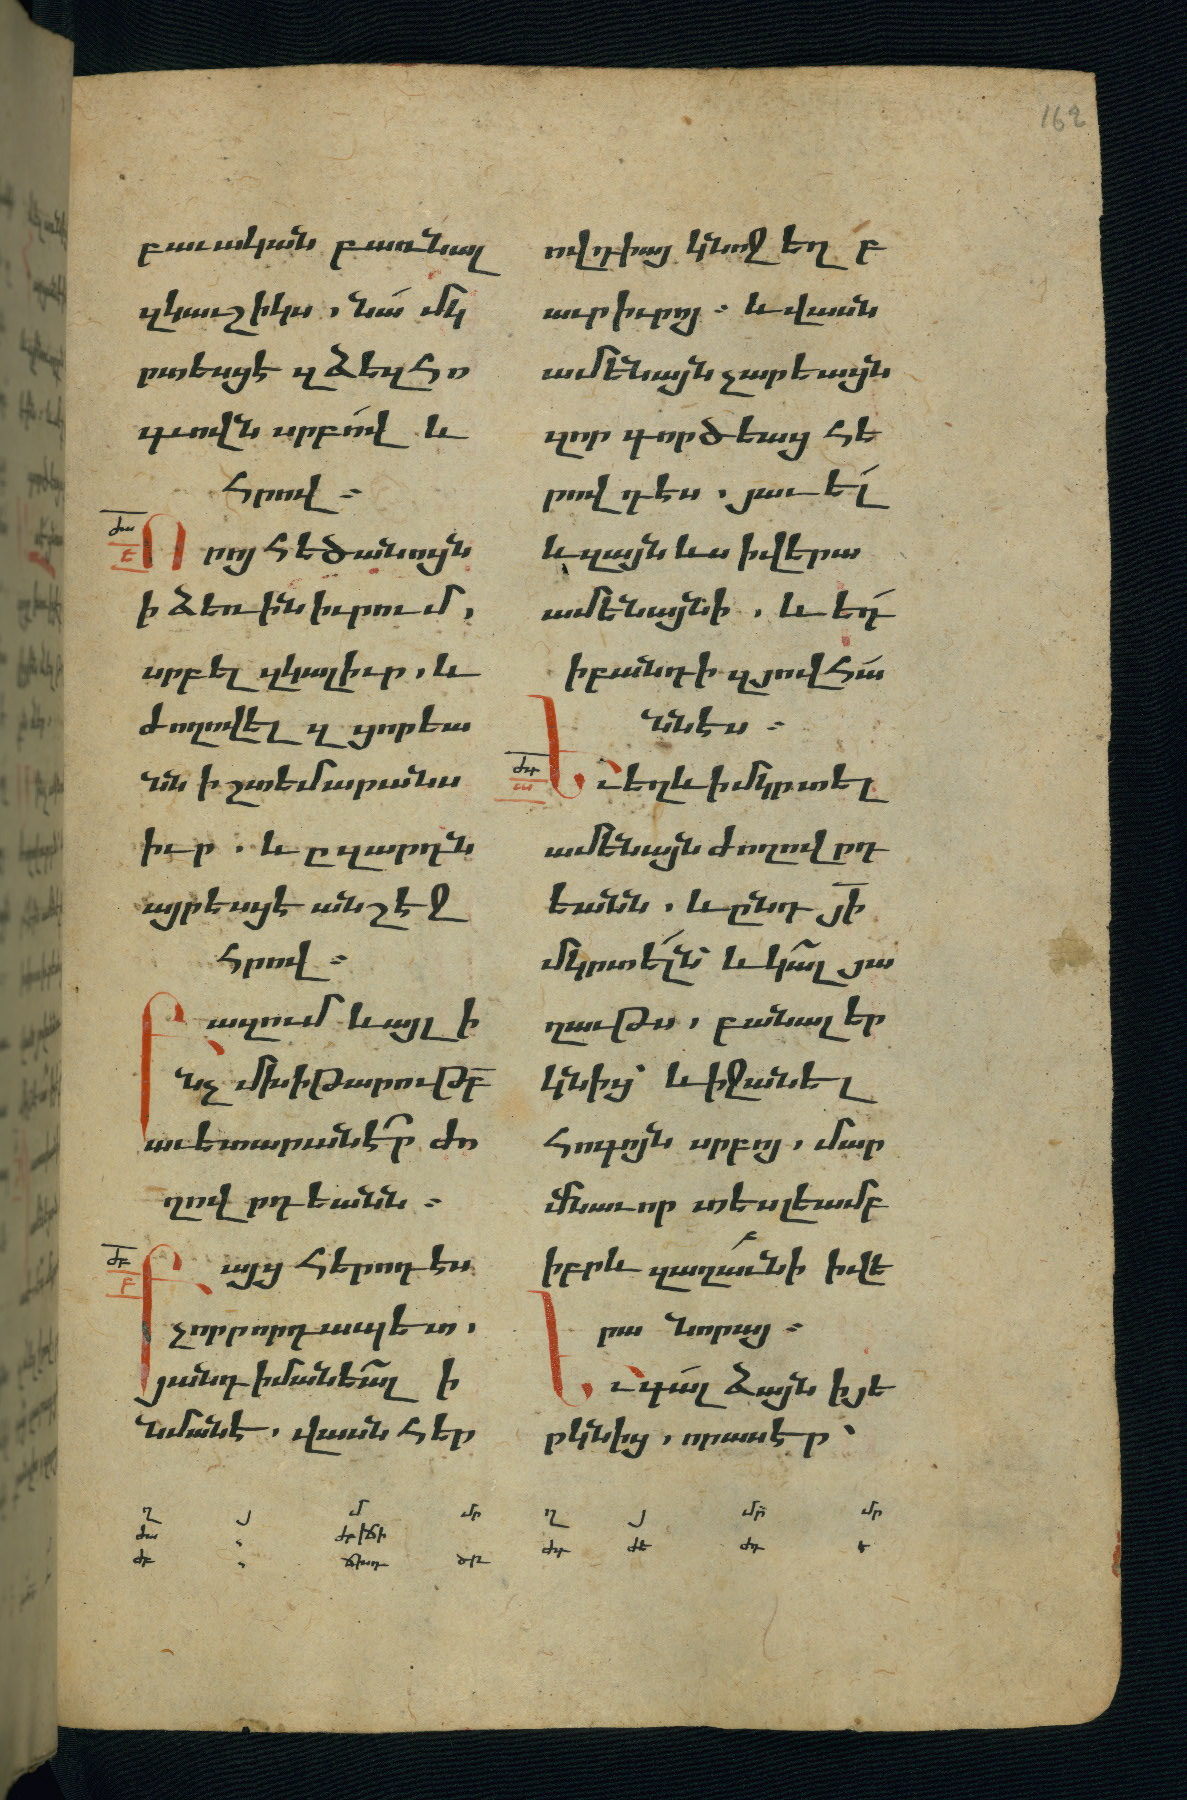 162
բաւական բառնալ
զկաւշիկս, նա՛ մկ
րտեսցէ զձեզ հո
գւովն սրբո՛վ և
հրով ։
ժա
է
Որոյ հեծանոցն
ի ձեռին իւրում,
սրբել զկալ իւր, և
ժողովել զցորեա
նն ի շտեմարանս
իւր. և ըզյարդն
այրեսցէ անշէջ
հրով ։
Բազում և այլ ի
նչ մխիթարութբ̄
աւետարանէր ժո
ղովրդեանն ։
ժբ
բ
Բայց հերոդէս
չորրորդապետ,
յանդիմանեալ ի
նմանէ, վասն հեր
ովդիայ կնոջ եղբ
աւր իւրոյ ։ և վասն
ամենայն չարեացն
զոր գործեաց հե
րովդէս, յաւել
և զայն ևս ի վերա
ամենայնի. և եդ
ի բանդի զյովհա
ննէս ։
ժգ
ա
Եւ եղև ի մկրտել
ամենայն ժողովրդ
եանն, և ընդ յի̄
մկրտելն՝ և կալ յա
ղաւթս, բանալ եր
կնից՝ և իջանել
հոգոյն սրբոյ, մար
մնաւոր տեսլեամբ
իբրև զաղաւնի ի վե
րա նորայ ։
Եւ գալ ձայն ի յե
րկնից, որ ասէր՝